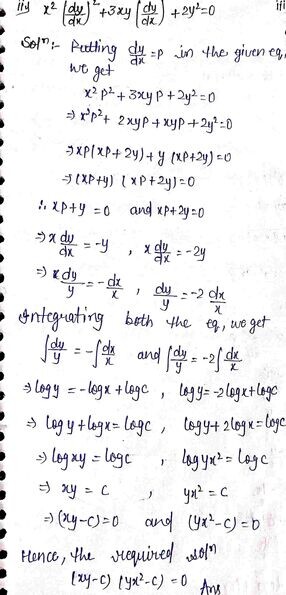 iii) x² (dy/dx)² + 3xy (dy/dx) + 2y² = 0
Solⁿ:- Putting dy/dx = p in the given eq,
we get
x²p² + 3xyp + 2y² = 0
⇒ x²p² + 2xyp + xyp + 2y² = 0
⇒ xp(xp + 2y) + y (xp + 2y) = 0
⇒ (xp + y) (xp + 2y) = 0
∴ xp + y = 0 and xp + 2y = 0
⇒ x dy/dx = -y , x dy/dx = -2y
⇒ x dy/y = - dx/x , dy/y = -2 dx/x
Integrating both the eq, we get
∫ dy/y = - ∫ dx/x and ∫ dy/y = -2 ∫ dx/x
⇒ log y = -log x + log c , log y = -2 log x + log c
⇒ log y + log x = log c , log y + 2 log x = log c
⇒ log xy = log c , log yx² = log c
⇒ xy = c , yx² = c
⇒ (xy - c) = 0 and (yx² - c) = 0
Hence, the required solⁿ
(xy - c) (yx² - c) = 0 Ans